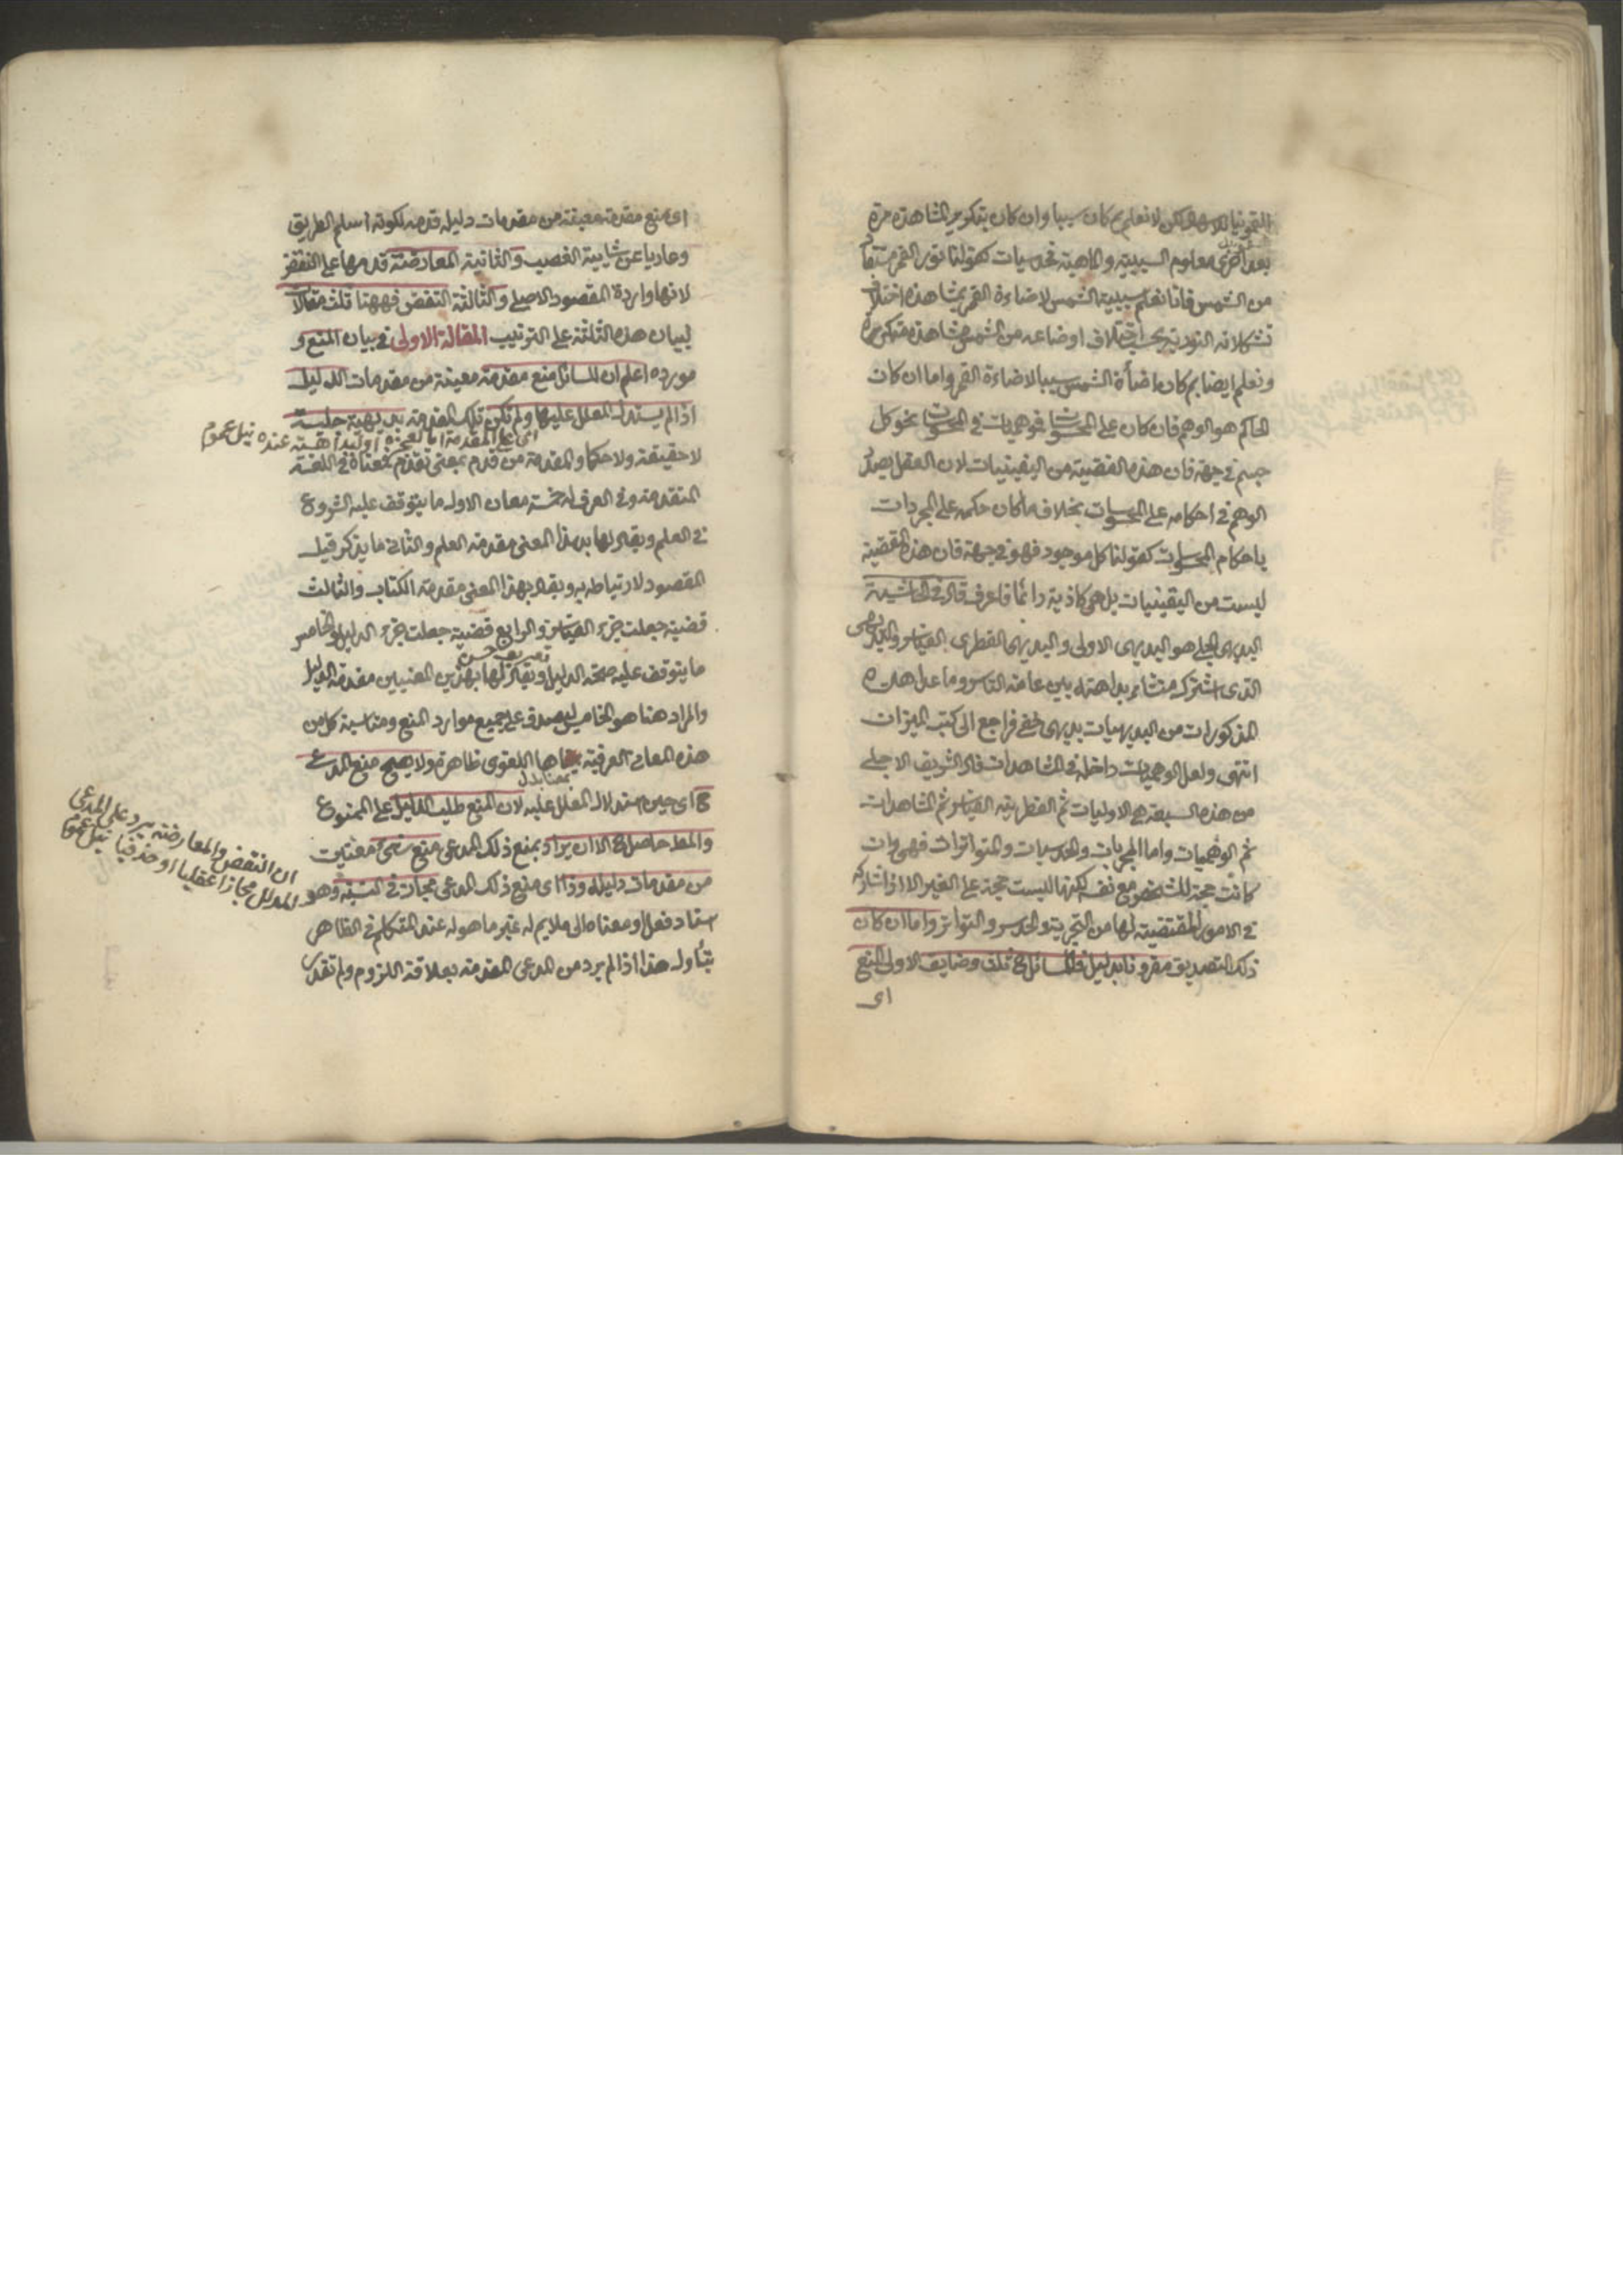 السقمونيا للاسهال لكن لا نعلم بم كان سببا وان كان بتكرير المشاهدة مرة
بعد اخرى معلوم السببية والماهية فحدسيات كقولنا نور القمر مستفاد
من الشمس فانا نعلم سببية الشمس لاضاءة القمر بمشاهدة اختلاف
تشكلاته النورية بحسب اختلاف اوضاعه من الشمس مشاهدة متكررة
ونعلم ايضا بم كان اضأة الشمس سببا لاضاءة القمر واما ان كان
الحاكم هو الوهم فان كان على المحسوسات فوهميات في المحسوسات نحو كل
جسم في جهة فان هذه القضية من اليقينيات لان العقل يصدق
الوهم في احكامه على المحسوسات بخلاف ما كان حكمه على المجردات
باحكام المحسوسات كقولنا كل موجود فهو في جهة فان هذه القضية
ليست من اليقينيات بل هي كاذبة دائما فاعرف قال في الحاشية
البديهي الجلي هو البديهي الاولى والبديهي الفطرى القياس والبديهى
الذى اشترك منشائر بداهته بين عامة الناس وما عدا هذه
المذكورات من البديهيات بديهى خفى فراجع الى كتب الميزان
انتهى ولعل الوهميات داخلة في المشاهدات قال الشريف الاجلى
من هذه السبعة هى الاوليات ثم الفطرية القياس ثم المشاهدات
ثم الوهميات واما المجربات والحدسيات والمتواترات فهى وان
كانت حجة للشخص مع نفسه لكنها ليست حجة على الغير الا اذا شاركه
في الامور المقتضية لها من التجربة والحدس والتواتر واما ان كان
ذلك التصديق مقرونا بدليل فللسائل ح ثلث وضايف الاولى المنع
اى
اى منع مقدمة معينة من مقدمات دليله قدمه لكونه اسلم الطريق
وعاريا عن شايبة الغصب والثانية المعارضة قدمها على النقض
لانها واردة المقصود الاصلى والثالثة النقض فههنا ثلث مقالات
لبيان هذه الثلثة على الترتيب المقالة الاولى في بيان المنع و
مورده اعلم ان للسائل منع مقدمة معينة من مقدمات الدليل
اذا لم يستدل المعلل عليها ولم تكن تلك المقدمة بديهية جلية
اى على المقدمة اما لعجزه او لبداهته عنده
لا حقيقة ولا حكما والمقدمة من قدم بمعنى تقدم فمعناه في اللغة
المتقدمة وفي العرف له خمسة معان الاول ما يتوقف عليه الشروع
في العلم ويقال لها بهذا المعنى مقدمة العلم والثانى ما يذكر قبل
المقصود لارتباطه به ويقال بهذا المعنى مقدمة الكتاب والثالث
قضية جعلت جزء القياس والرابع قضية جعلت جزء الدليل والخامس
ما يتوقف عليه صحة الدليل ويقال لها بهذين المعنيين مقدمة الدليل
والمراد هنا هو الخامس ليصدق على جميع موارد المنع ومناسبة كل من
هذه المعانى العرفية بمعناها اللغوى ظاهرة ولا يصح منع المدعى
ح اى حين استدلال المعلل عليه لان المنع طلب الدليل على الممنوع
والمط حاصل ح الا ان يراد بمنع ذلك المدعى منع شئ معين
من مقدمات دليله وذا اى منع ذلك المدعى مجاز في النسبة وهو
اسناد فعل او معناه الى ملايم له غير ما هو له عند المتكلم في الظاهر
بتأول هذا اذا لم يرد من المدعى المقدمة بعلاقة اللزوم ولم تقدر
ان النقض والمعارضة يرد على المدعى
المدلل مجازا عقليا او حذفيا